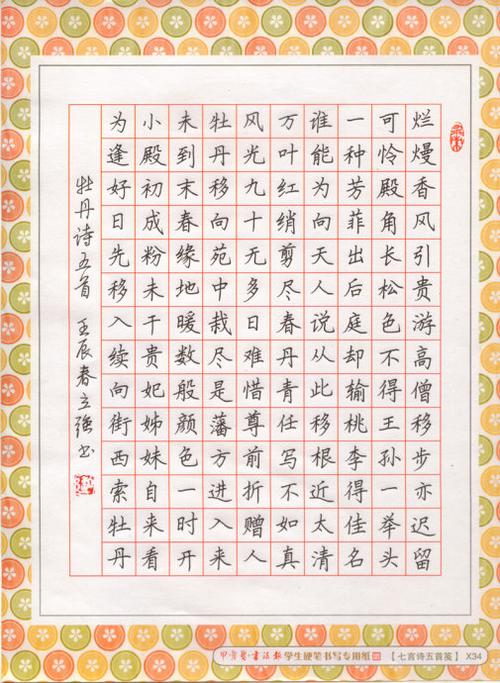 烂熳香风引贵游高僧移步亦迟留
可怜殿角长松色不得王孙一举头
一种芳菲出后庭却输桃李得佳名
谁能为向天人说从此移根近太清
万叶红绡剪尽春丹青任写不如真
风光九十无多日难惜尊前折赠人
牡丹移向苑中栽尽是藩方进入来
未到末春缘地暖数般颜色一时开
小殿初成粉未干贵妃姊妹自来看
为逢好日先移入续向街西索牡丹
牡丹诗五首 壬辰春立强书
书法报 学生硬笔书写专用纸 【七言诗五首笺】 X34